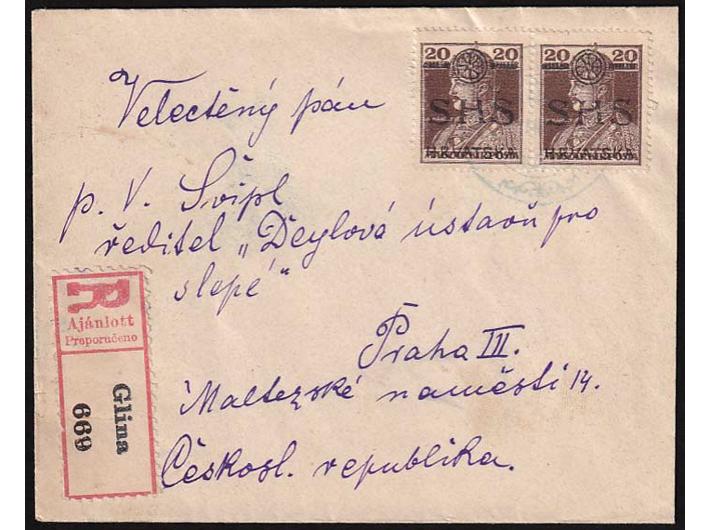 20 20 20 20
SHS SHS
HRVATSKA HRVATSKA
Velectěný pán
p. V. Švipl
ředitel „Deylová ústavů pro
slepé"
Praha III.
Maltezské naměsti 14.
Českosl. republika.
R
Ajánlott
Preporučeno
Glina
669